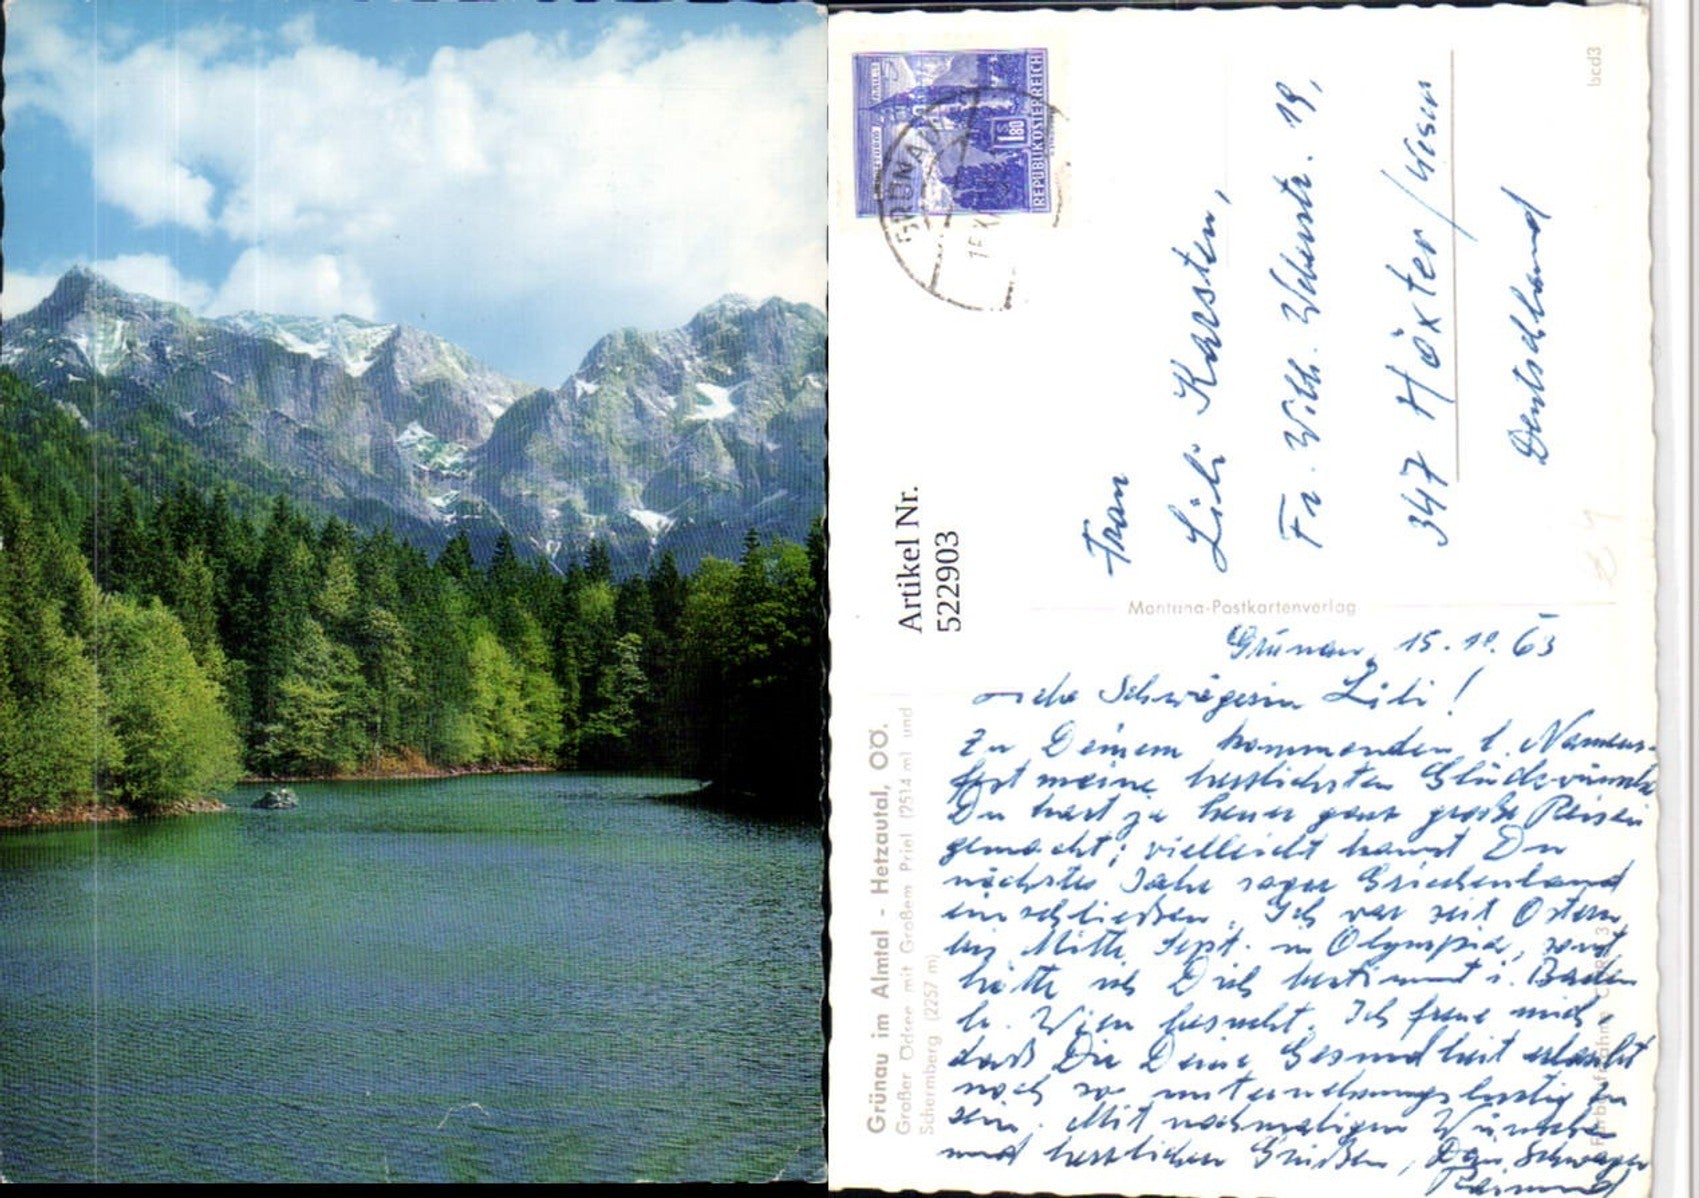 REPUBLIK ÖSTERREICH
S 1.80
GRÜNAU
Artikel Nr.
522903
Frau
Lili Karsten,
Fr. Wilh. Weberstr. 19,
347 Höxter/Weser
Deutschland
bcd3
Montana-Postkartenverlag
Grünau im Almtal - Hetzautal, OÖ.
Großer Ödsee mit Großem Priel (2514 m) und
Schermberg (2257 m)
Grünau, 15.10.63
Schwägerin Lili!
Zu Deinem kommenden l. Namens-
fest meine herzlichsten Glückwünsche
Du hast ja heuer ganz große Reisen
gemacht; vielleicht kannst Du
nächstes Jahr sogar Griechenland
einschließen. Ich war seit Ostern
bis Mitte Sept. in Olympia, sonst
hätte ich Dich bestimmt i. Baden
b. Wien besucht. Ich freue mich,
daß Dir Deine Gesundheit erlaubt
noch so unternehmungslustig zu
sein. Mit nochmaligen Wünschen
und herzlichen Grüßen, Dein Schwager